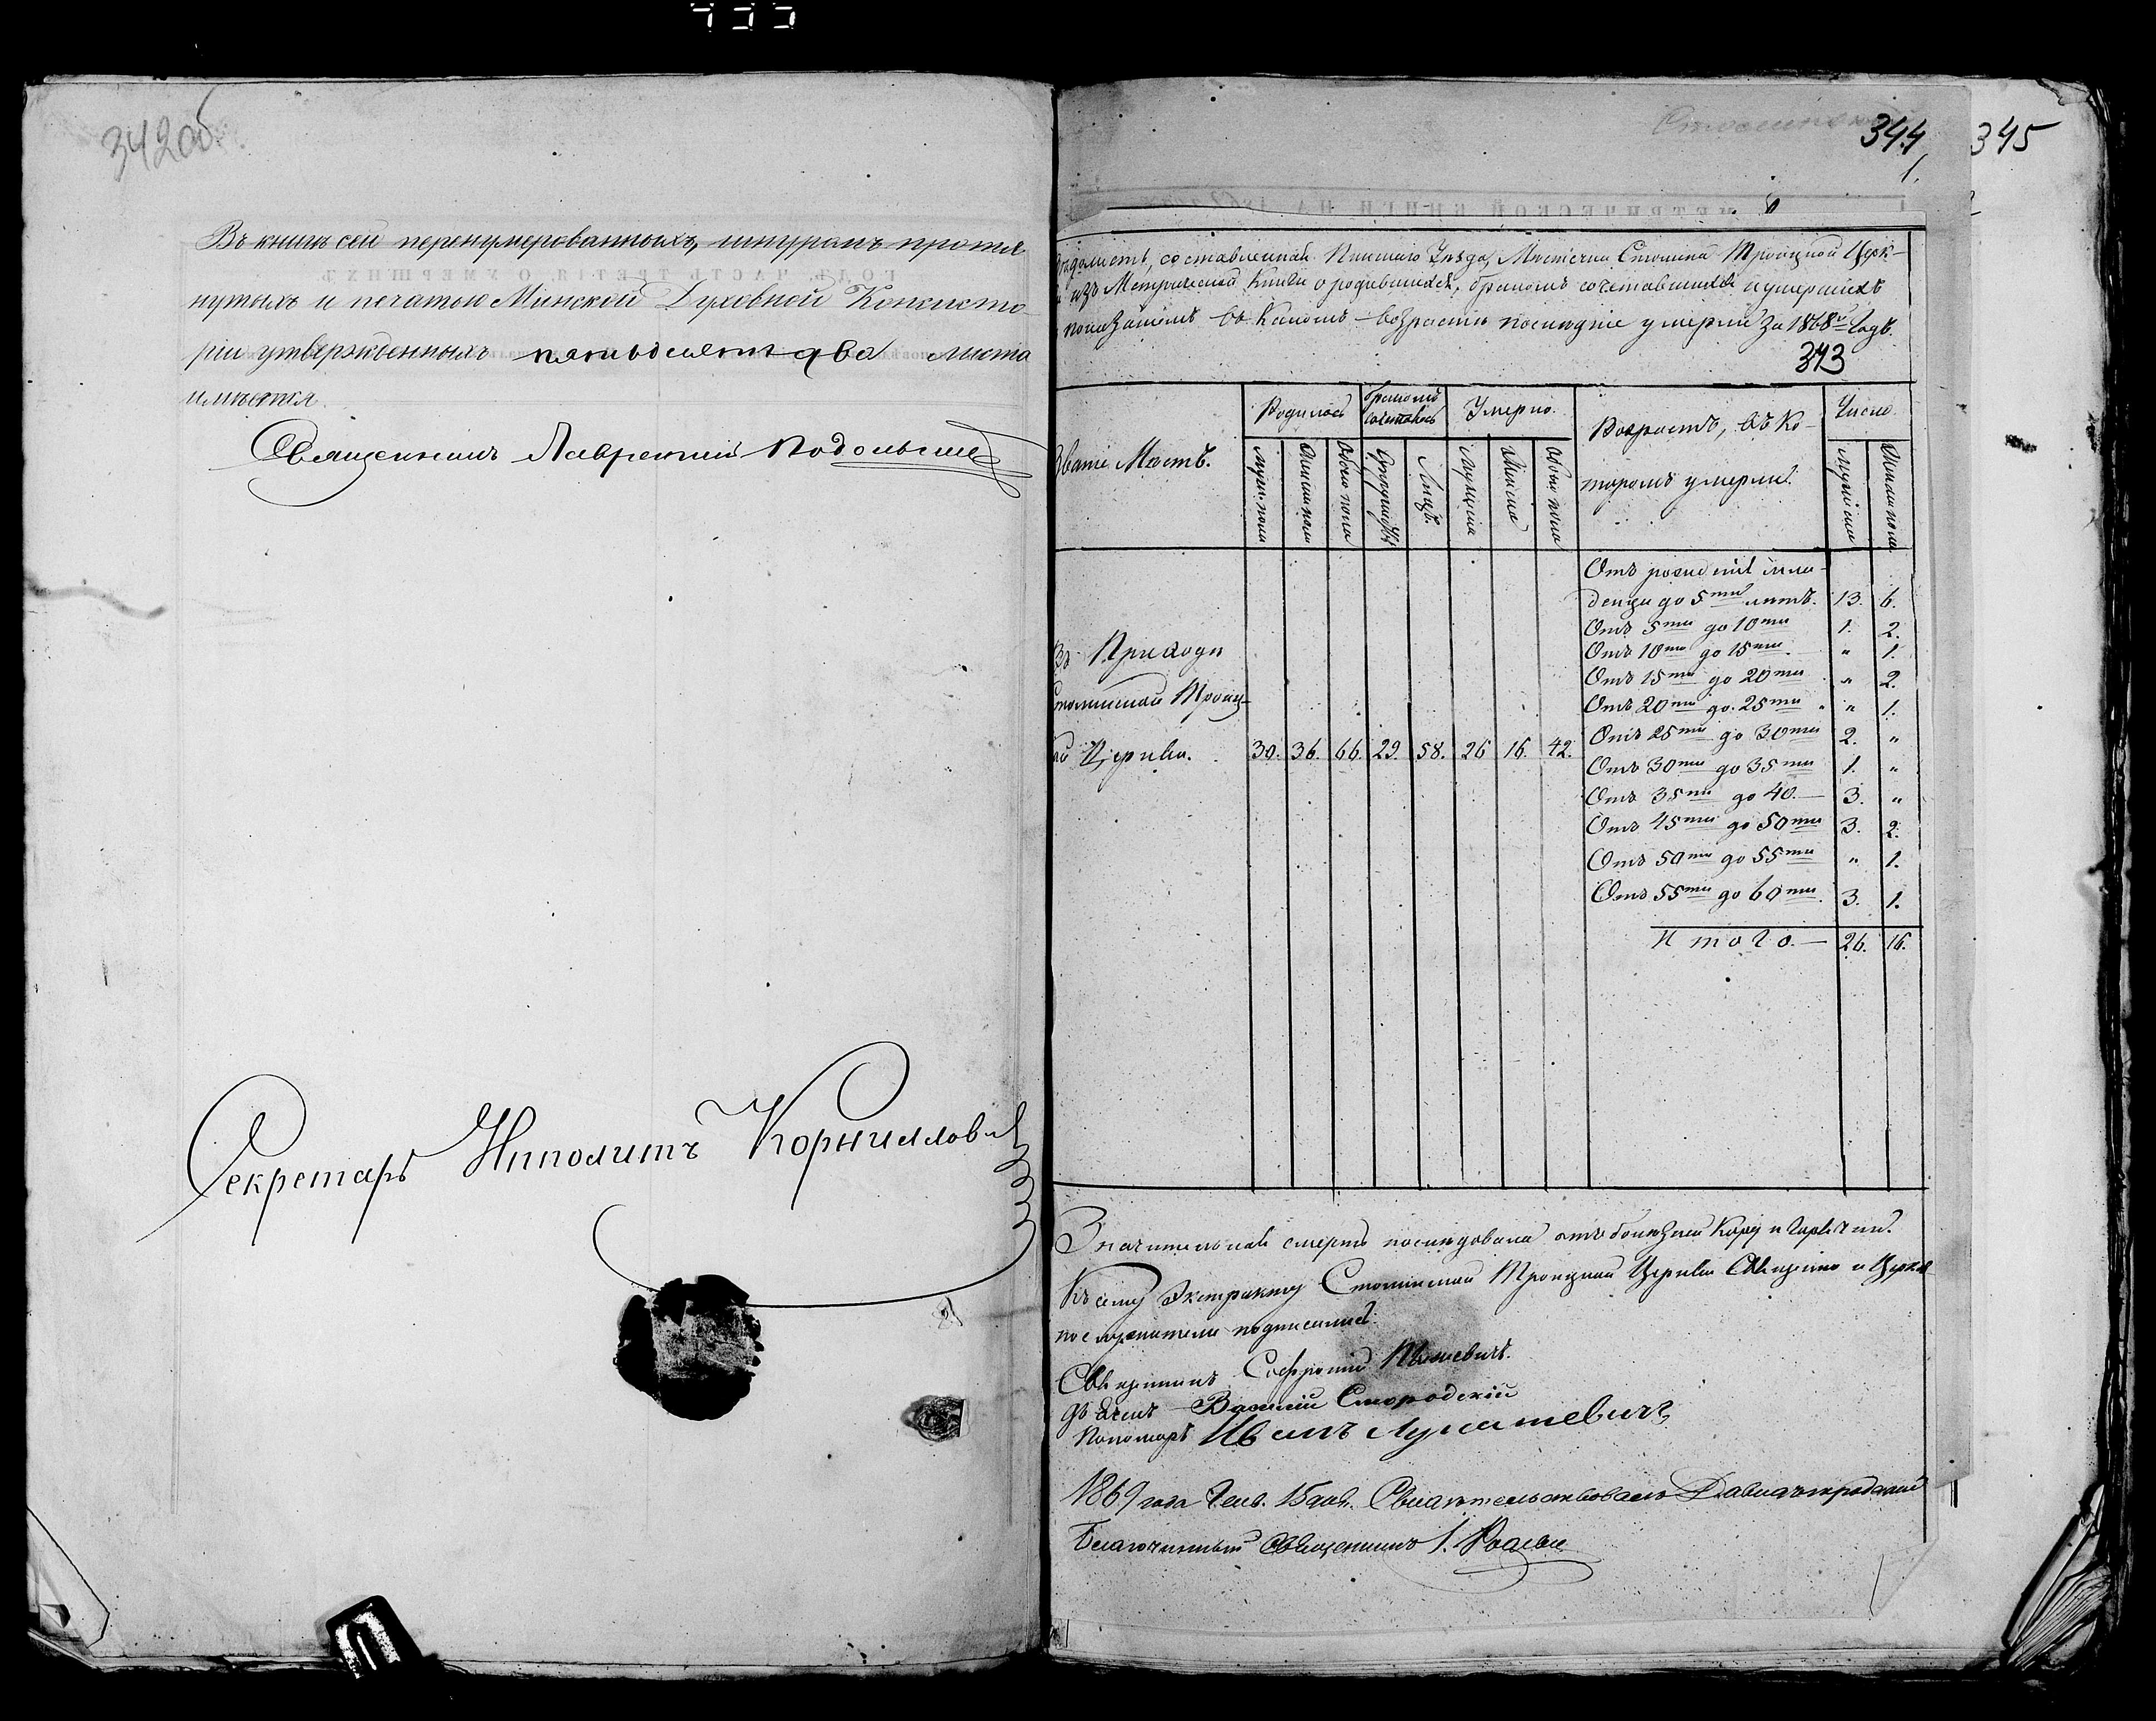 342об
Въ книгѣ сей перенумерованныхъ, шнуромъ протяг
нутыхъ и печатью Минской Духовной Консисто
ріи утвержденныхъ пятьдесятъ два листа
имѣется
Священникъ Лаврентій Подольскій
Секретарь Ипполитъ Корниллов
344 345
1.
Вѣдомость, составленная Пинскаго Уѣзда, Мѣстечка Столина Троицкой Церк-
изъ Метрической Книги о родившихся, бракомъ сочетавшихся и умершихъ
показаніемъ въ какомъ возрастѣ послѣдніе умерли за 1868й Годъ.
343
Званіе Мѣстъ.
Родилось
Бракомъ сочеталось
Умерло.
Возрастъ, въ ко-
торомъ умерли.
Число.
Муж. пола
Женска пола
Обоего пола
Супружествъ
Лицъ.
Мужска
Женска
Обоего пола
Мужеска
Женска пола
Въ Приходѣ
Столинской Троиц-
кой Церкви. 30. 36. 66. 29. 58. 26 16. 42.
Отъ рожденія мла-
денцы до 5ти лѣтъ. 13. 6.
Отъ 5ти до 10ти 1. 2.
Отъ 10ти до 15ти — " 1.
Отъ 15ти до 20ти " 2.
Отъ 20ти до 25ти " 1.
Отъ 25ти до 30ти 2. "
Отъ 30ти до 35ти 1. "
Отъ 35ти до 40. — 3. "
Отъ 45ти до 50ти 3. 2.
Отъ 50ти до 55ти " 1.
Отъ 55ти до 60ти 3. 1.
Итого. — 26. 16.
Значительная смерть послѣдовала отъ болѣзней Кори и Горячки.
Къ сему Экстракту Столинской Троицкой Церкви Священно и Церков
нослужители подписались:
Священникъ Софроній
Дьячекъ Василій Смородскій
Пономарь Иванъ Лукашевичъ
1869 года Генв. 15 дня. Свидѣтельствовалъ Давидгородскій
Благочинный Священникъ І.